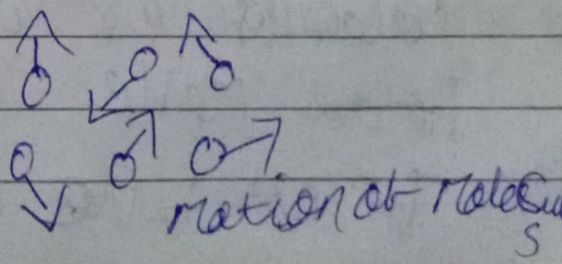 motion of molecu
s